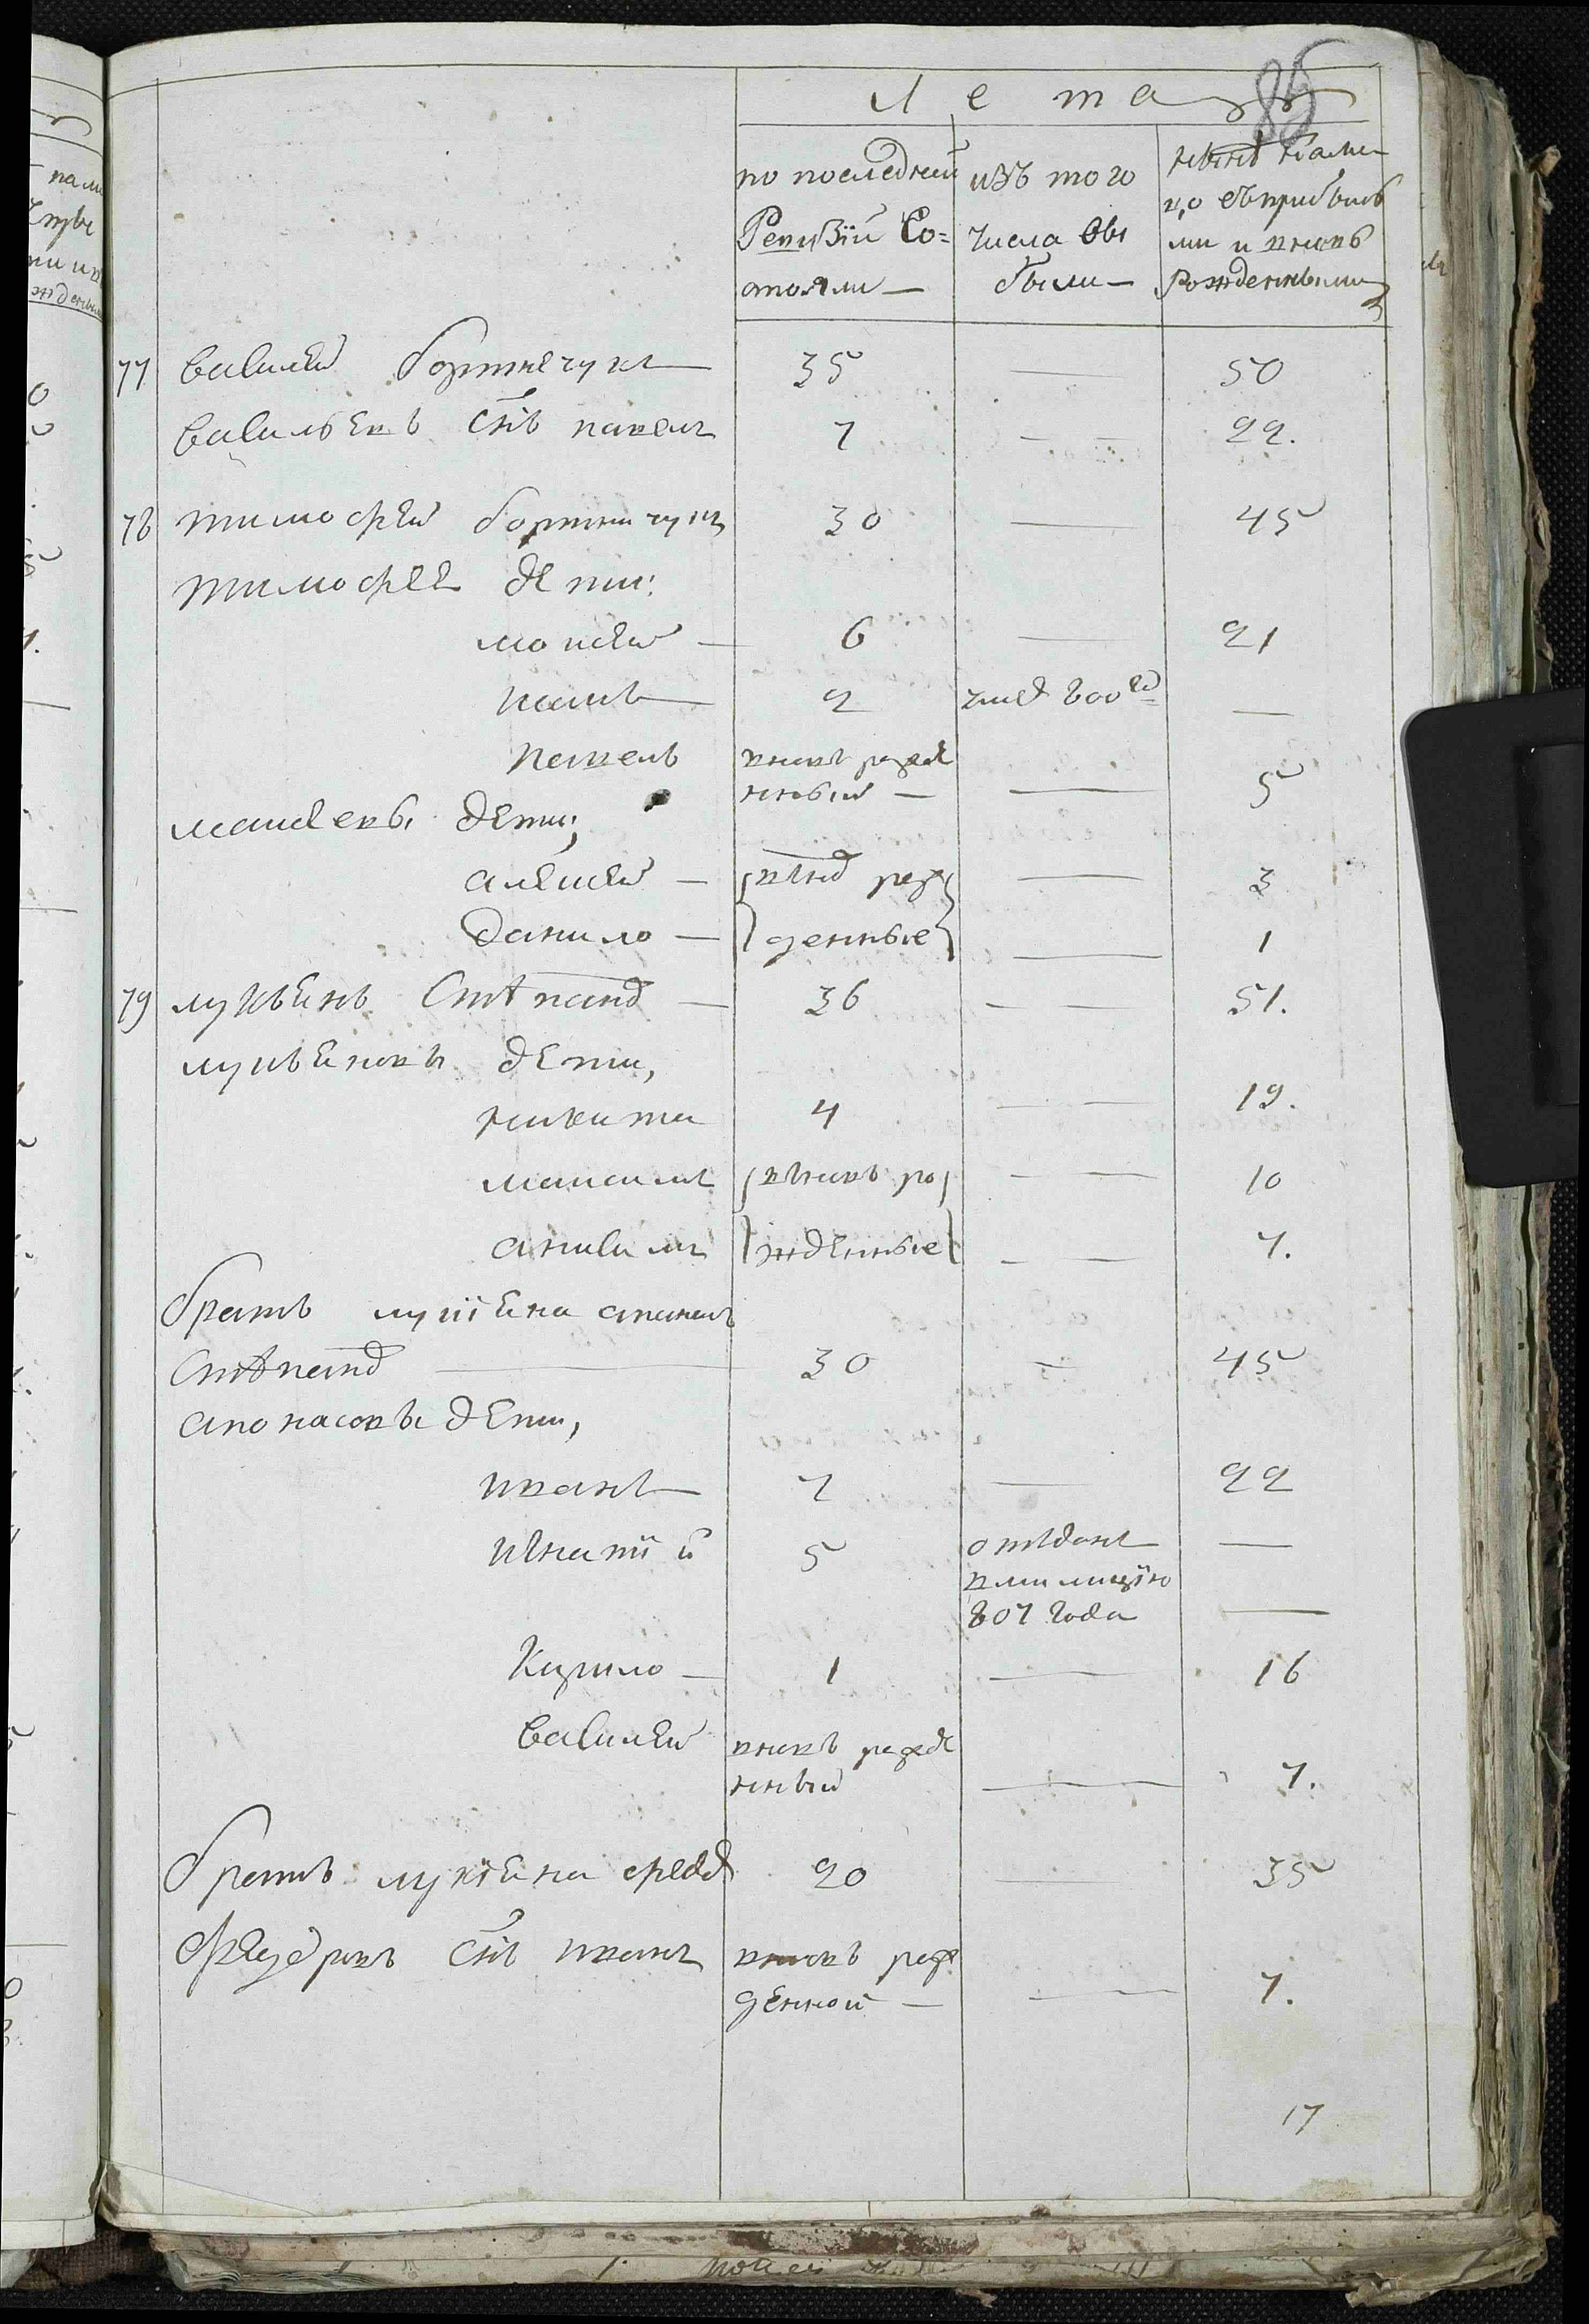 85
Летаъ
по последней
Ревизіи Со=
стояли —
изъ того
числа вы
были —
ныне налы
цо съ прибылы
ми и вновь
рожденными
77 василей бортнечукъ — 35 — 50
васильевъ снъ павелъ 7 — — 22.
78 тимофей бортничукъ 30 — 45
тимофее дети:
мойсей — 6 — 21
иванъ — 2 умеръ 800го —
павелъ вновь рожде
нный — — 5
мойсеевы дети;
алексей — вновь рож — 3
данило — денные — 1
79 лукьянъ Степанд — 36 — 51.
лукьяновы дети,
никита 4 — 19.
максимъ вновь ро — 10
анисимъ жденные — 7.
братъ лукіяна апанасъ
Степанд — 30 — 45
апонасовы дети,
иванъ — 7 — 22
игнатій 5 отданъ —
в милицію
807 года —
Кирило — 1 — 16
василей вновь рожде
нный — 7.
братъ лукіяна федоръ 20 — 35
федоровъ снъ иванъ вновь рож
денной — — 7.
17